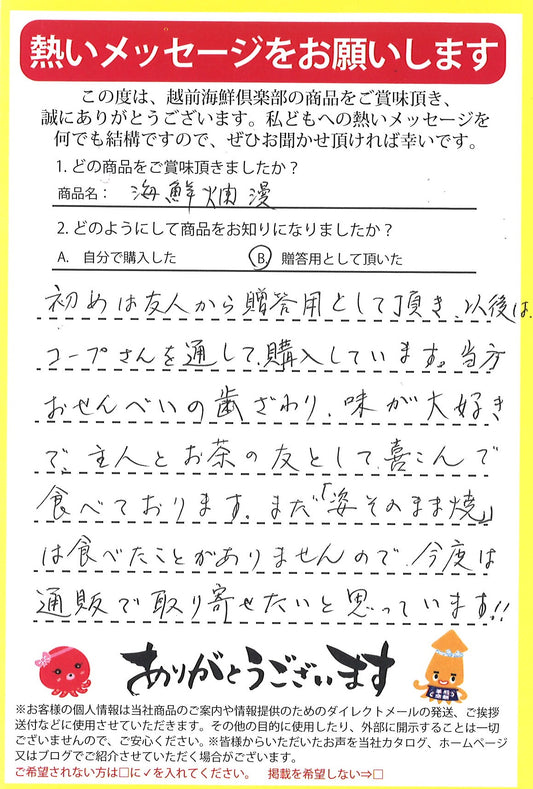 熱いメッセージをお願いします
この度は、越前海鮮倶楽部の商品をご賞味頂き、
誠にありがとうございます。私どもへの熱いメッセージを
何でも結構ですので、ぜひお聞かせ頂ければ幸いです。
1. どの商品をご賞味頂きましたか？
商品名： 海鮮爛漫
2. どのようにして商品をお知りになりましたか？
A. 自分で購入した B. 贈答用として頂いた
初めは友人から贈答用として頂き、以後は、
コープさんを通して、購入しています。当方
おせんべいの歯ざわり、味が大好き
で、主人とお茶の友として、喜こんで
食べております。まだ「姿そのまま焼」
は食べたことがありませんので、今度は
通販で取り寄せたいと思っています!!
ありがとうございます
※お客様の個人情報は当社商品のご案内や情報提供のためのダイレクトメールの発送、ご挨拶
送付などに使用させていただきます。その他の目的に使用したり、外部に開示することは一切
ございませんので、ご安心ください。※皆様からいただいたお声を当社カタログ、ホームページ
又はブログでご紹介させていただく場合がございます。
ご希望されない方は□に✓を入れてください。 掲載を希望しない⇒□